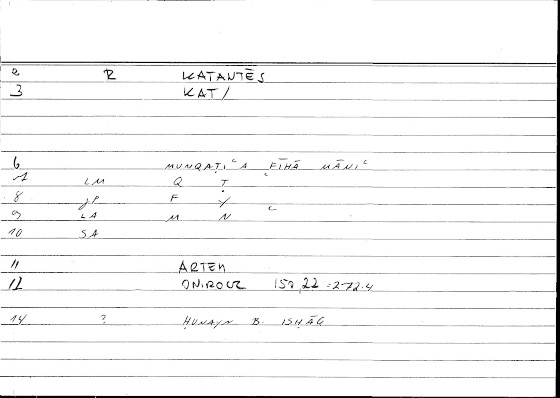 2 R KATANTĒS
3 KAT/
6 MUNQAṬIʿA FĪHĀ MĀNIʿ
7 LM Q Ṭ ʿ
8 JP F Y
9 LA M N ʿ
10 SA
11 ARTEM
12 ONIROCR 152,22 = 272.4
14 ? ḤUNAYN B. ISḤĀG